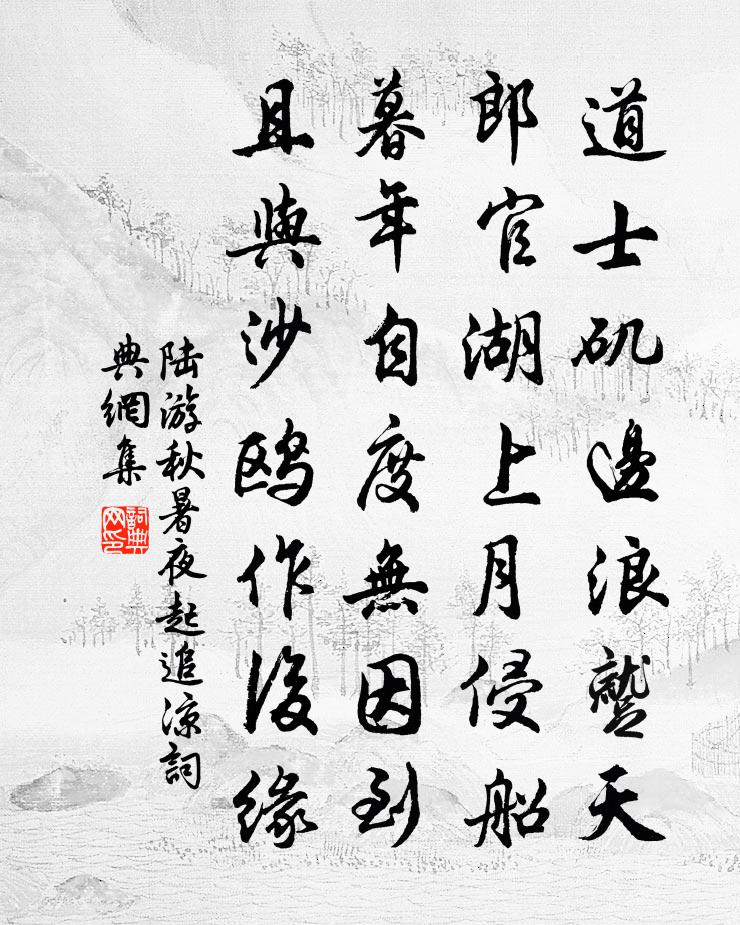 道士矶邊浪蹙天
郎官湖上月侵船
暮年自度無因到
且與沙鸥作後緣
陆游秋暑夜起追凉詞
典網集
詞典
网印